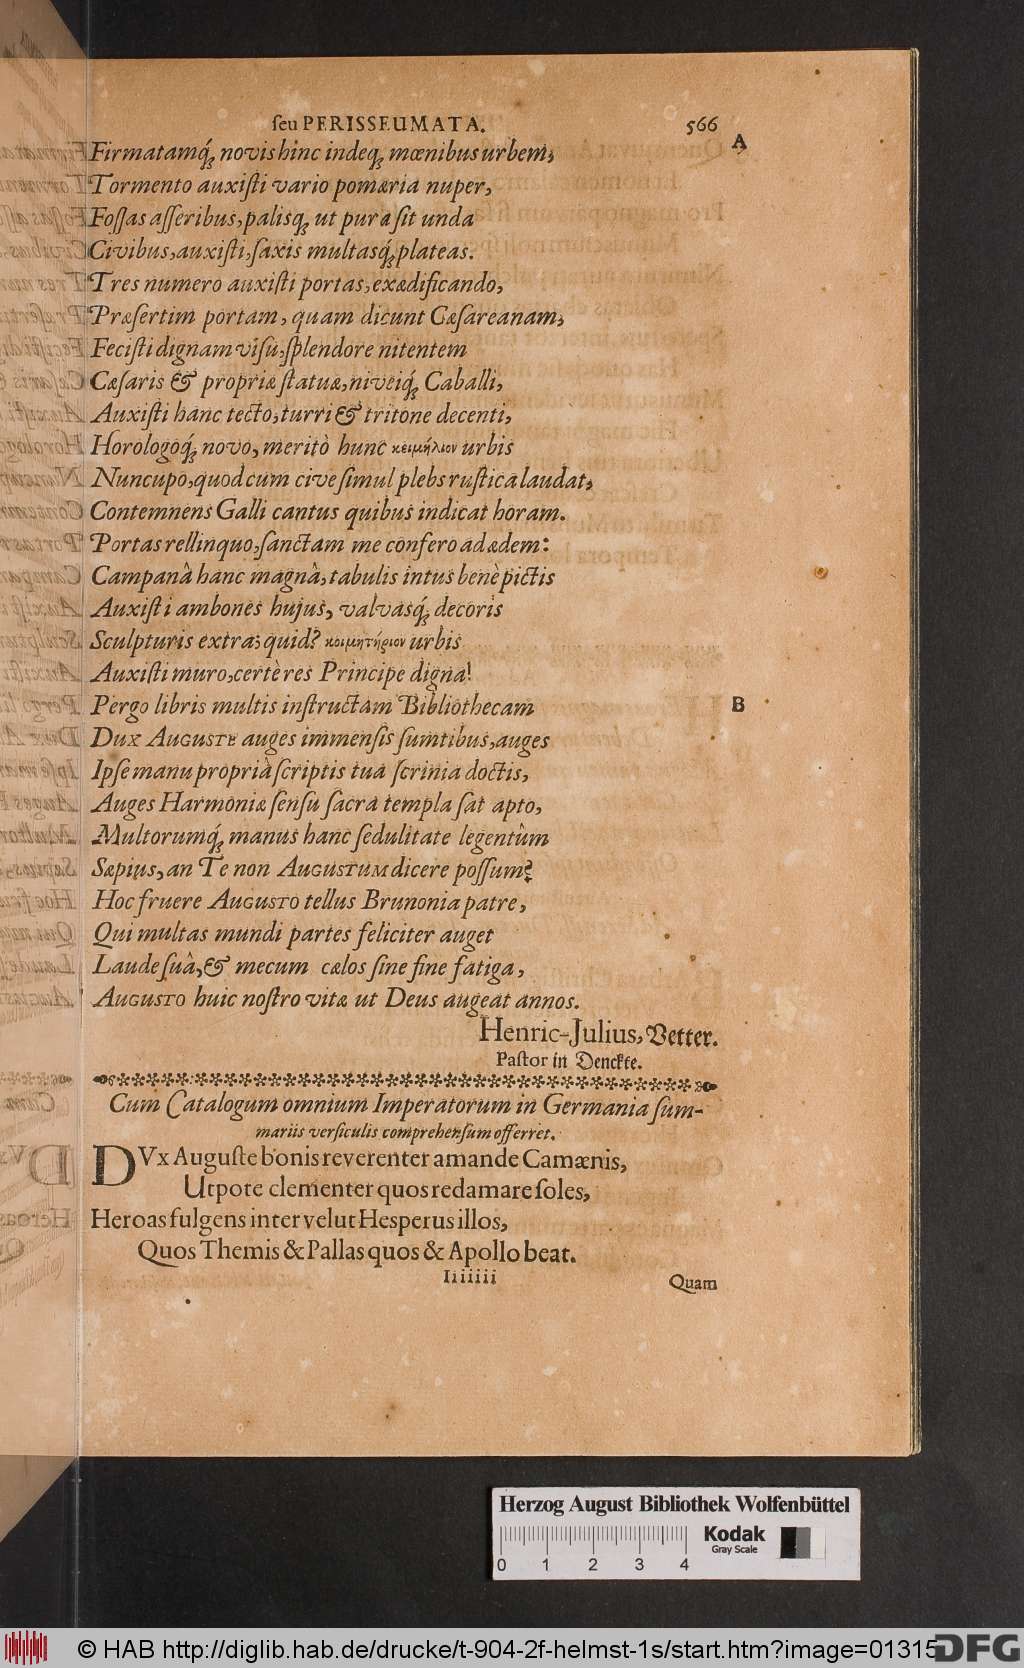 ſeu PERISSEUMATA. 566
Firmatamq́; novis hinc indeq; mœnibus urbem,
A
Tormento auxiſti vario pomæria nuper,
Foſſas aſſeribus, palisq; ut pura ſit unda
Civibus, auxiſti, ſaxis multasq́; plateas.
Tres numero auxiſti portas, exædificando,
Præſertim portam, quam dicunt Cæſareanam,
Feciſti dignam viſu, ſplendore nitentem
Cæſaris & propriæ ſtatuæ, niveiq́; Caballi,
Auxiſti hanc tecto, turri & tritone decenti,
Horologoq́; novo, meritò hunc κειμήλιον urbis
Nuncupo, quod cum cive ſimul plebs ruſtica laudat,
Contemnens Galli cantus quibus indicat horam.
Portas rellinquo, ſanctam me confero ad ædem:
Campanâ hanc magnâ, tabulis intus benè pictis
Auxiſti ambones hujus, valvasq́; decoris
Sculpturis extra; quid? κοιμητήριον urbis
Auxiſti muro, certè res Principe digna!
Pergo libris multis inſtructam Bibliothecam
B
Dux AUGUSTE auges immenſis ſumtibus, auges
Ipſe manu propriâ ſcriptis tua ſcrinia doctis,
Auges Harmoniæ ſenſu ſacra templa ſat apto,
Multorumq́; manus hanc ſedulitate legentûm
Sæpius, an Te non AUGUSTUM dicere poſſum?
Hoc fruere AUGUSTO tellus Brunonia patre,
Qui multas mundi partes feliciter auget
Laude ſuâ, & mecum cælos ſine fine fatiga,
AUGUSTO huic noſtro vitæ ut Deus augeat annos.
Henric-Julius, Vetter.
Paſtor in Denckte.
Cum Catalogum omnium Imperatorum in Germania ſum-
mariis verſiculis comprehenſum offerret.
DVx Auguſte bonis reverenter amande Camœnis,
Utpote clementer quos redamare ſoles,
Heroas fulgens inter velut Heſperus illos,
Quos Themis & Pallas quos & Apollo beat.
Iiiiiii
Quam
Herzog August Bibliothek Wolfenbüttel
Kodak
Gray Scale
0 1 2 3 4
© HAB http://diglib.hab.de/drucke/t-904-2f-helmst-1s/start.htm?image=01315
DFG